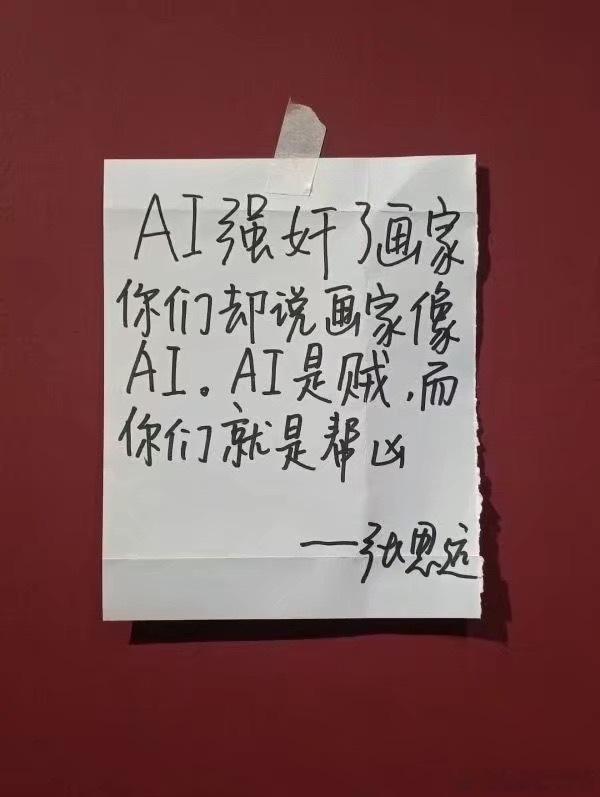 AI强奸了画家
你们却说画家像
AI。AI是贼,而
你们就是帮凶
——张恩远